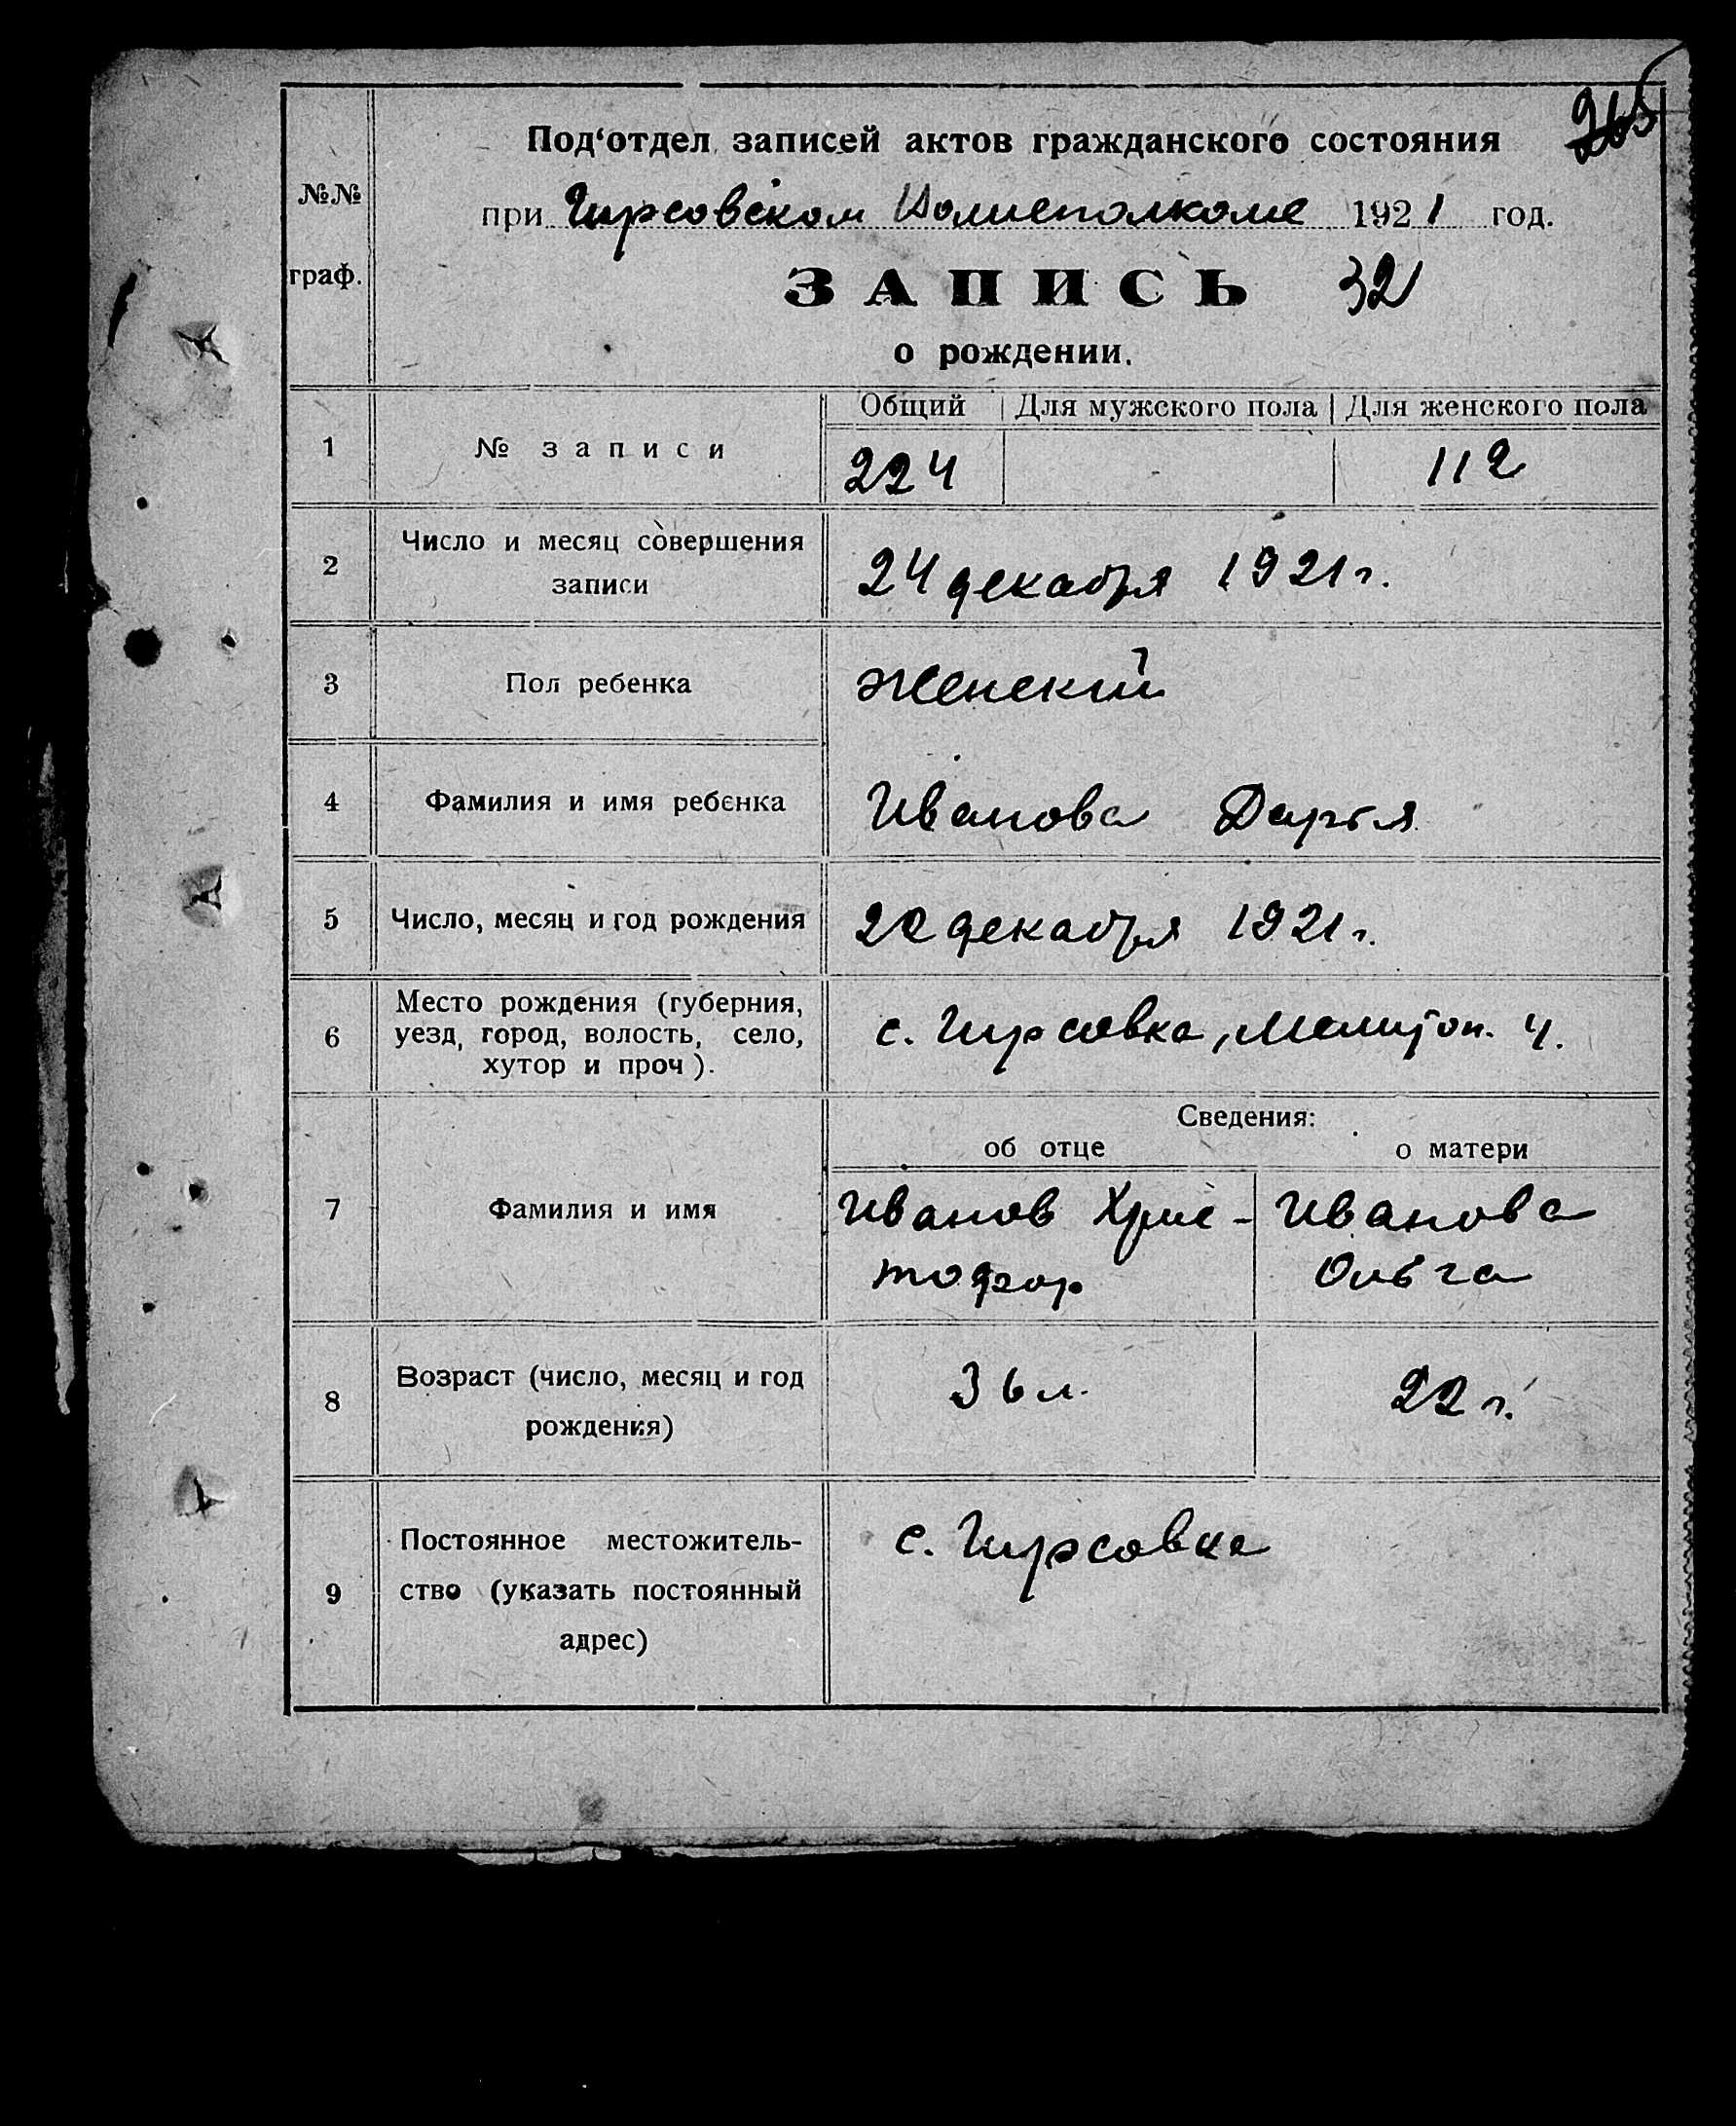 265
Под‘отдел записей актов гражданского состояния
№№
при Гирсовском Волисполкоме 1921 год.
граф.
ЗАПИСЬ 32
о рождении.
Общий Для мужского пола Для женского пола
1 № записи 224 112
2 Число и месяц совершения
записи
24 декабря 1921 г.
3 Пол ребенка Женский
4 Фамилия и имя ребенка Иванова Дарья
5 Число, месяц и год рождения 20 декабря 1921 г.
6 Место рождения (губерния,
уезд, город, волость, село,
хутор и проч).
с. Гирсовка, Мелитоп. у.
Сведения:
об отце о матери
7 Фамилия и имя
Иванов Хрис-
тофор
Иванова
Ольга
8 Возраст (число, месяц и год
рождения)
36 л. 22 г.
9 Постоянное местожитель-
ство (указать постоянный
адрес)
с. Гирсовка